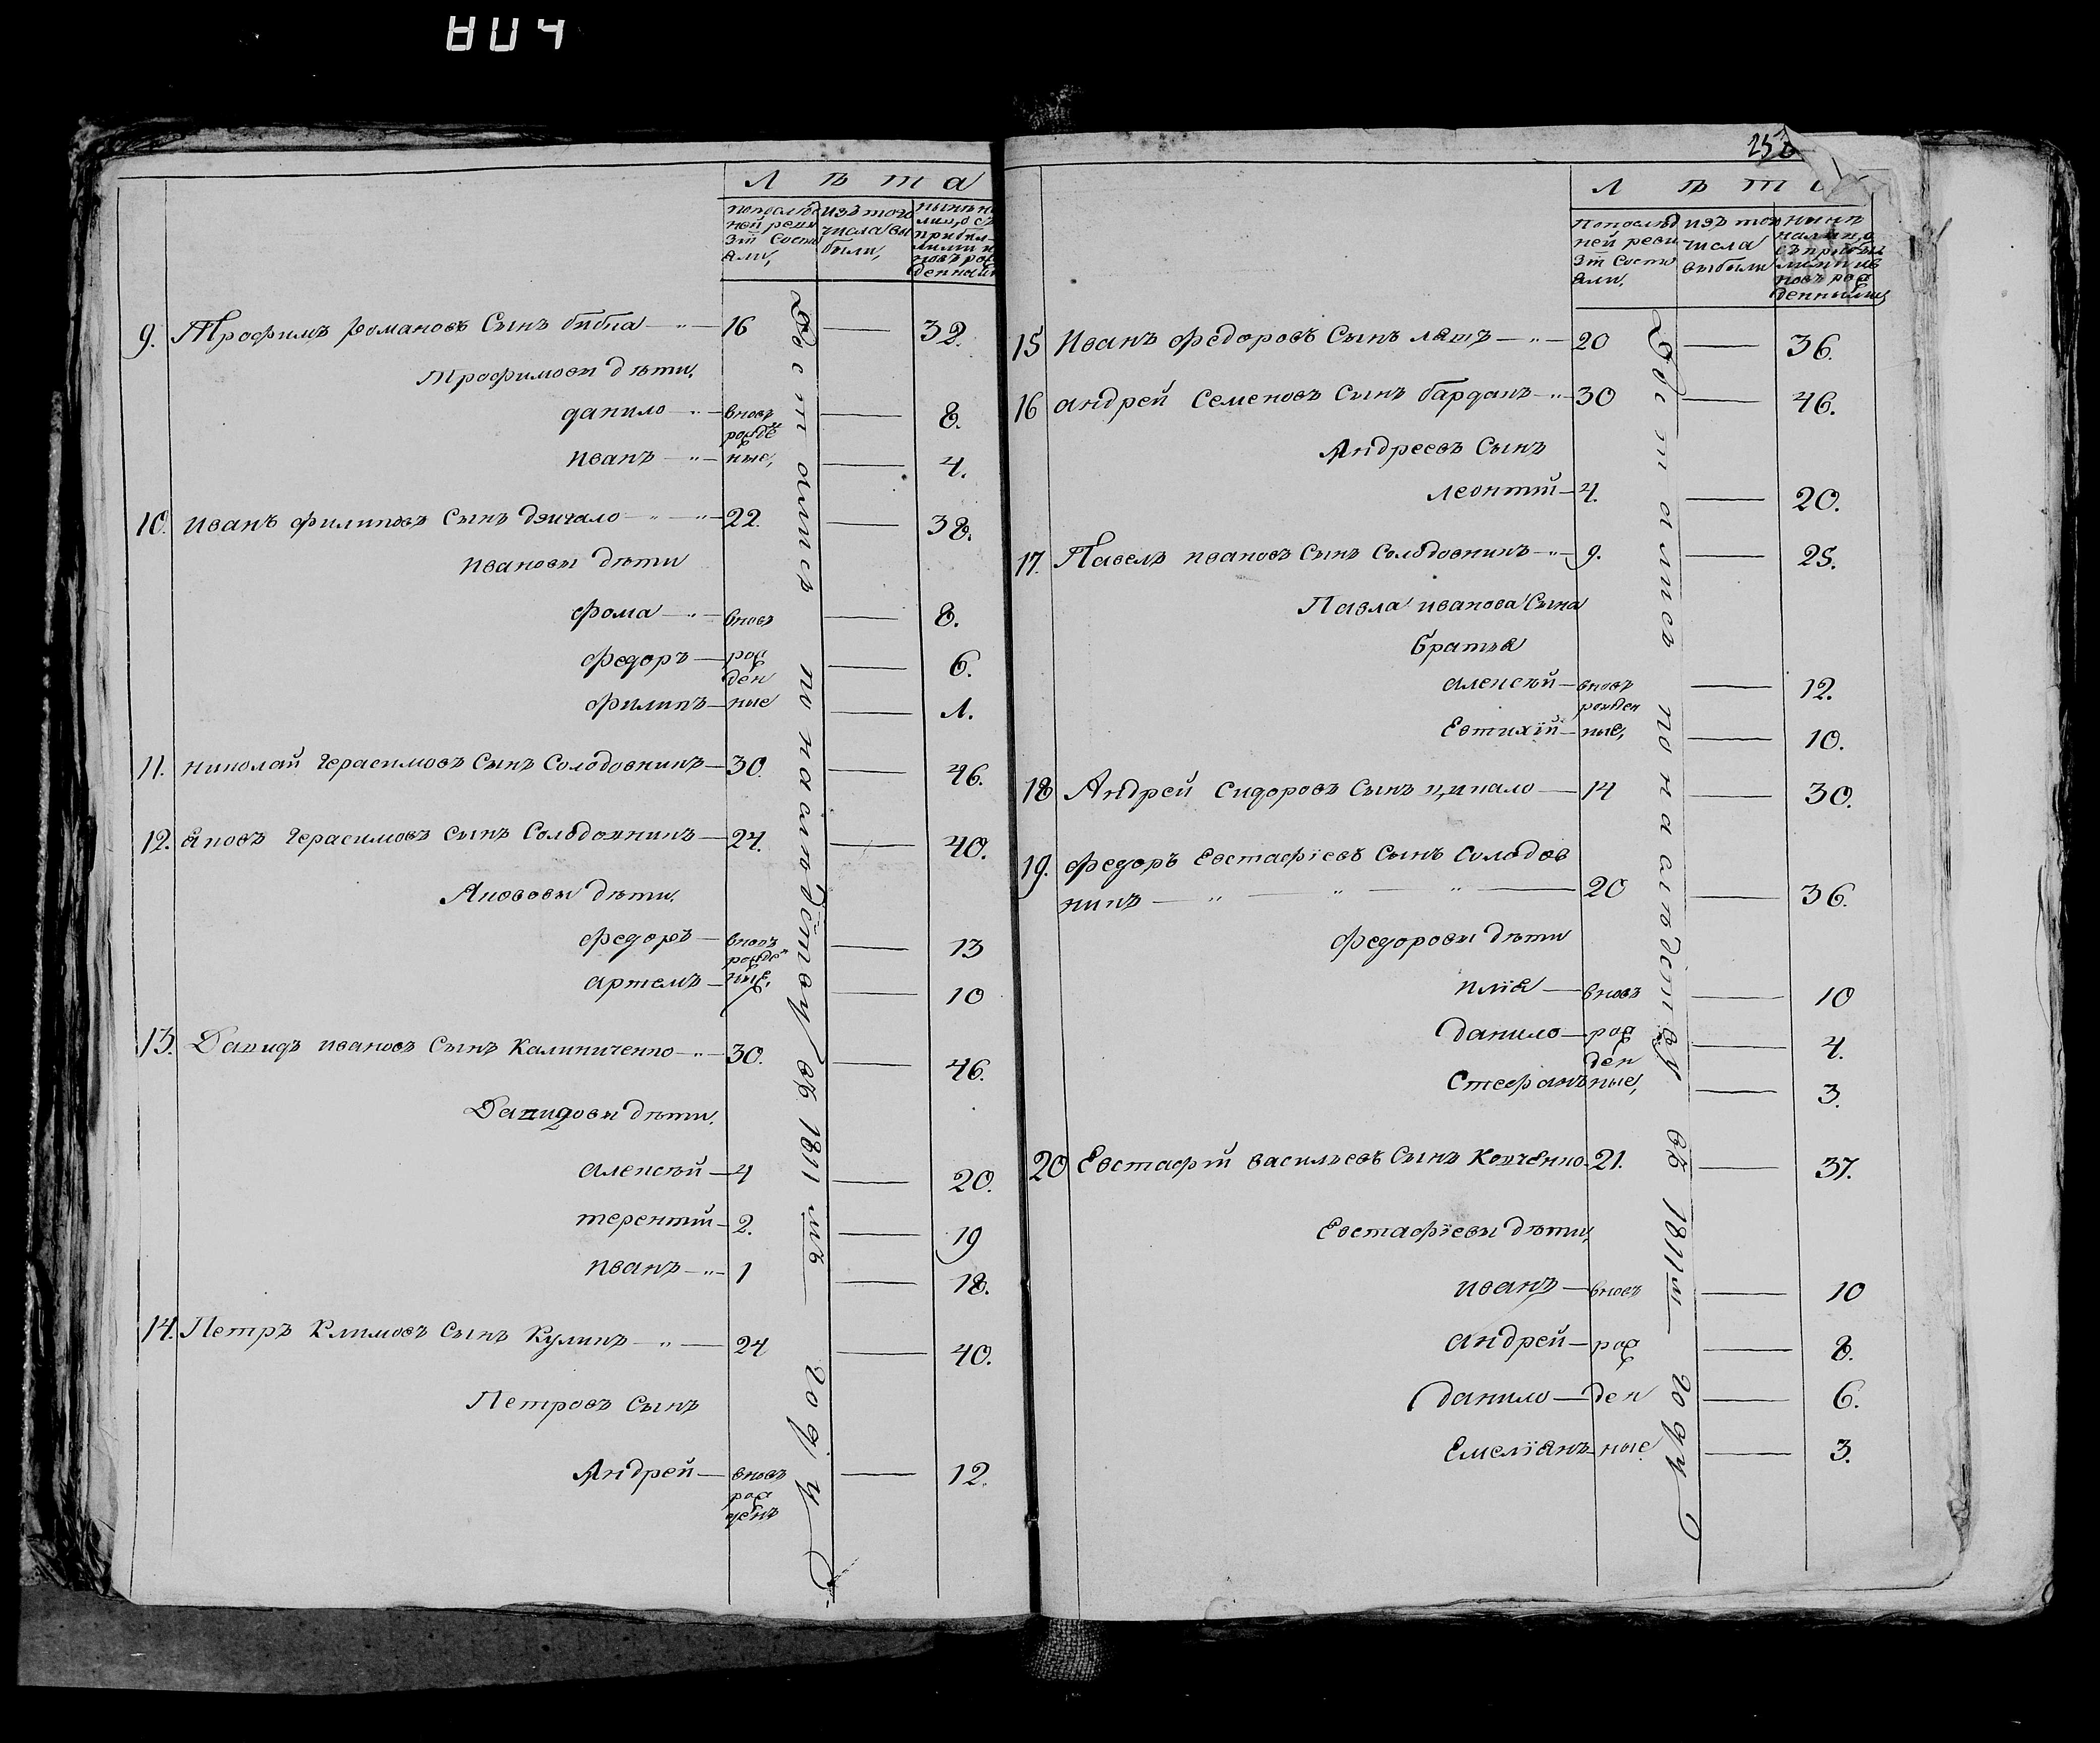 804
Л ѣ т а
попослѣд
ней реви
зіи состо
яли,
изъ того
числа вы
были,
нынѣ на
лицо съ
прибы-
лыми и
новъ рож
денными
9. Трофимъ Романовъ Сынъ бибка 16 32.
Трофимовы дѣти,
данило вновь 8.
рожден
иванъ ные, 4.
10. иванъ филиповъ Сынъ 22. 38.
ивановы дѣти
фома вновь 8.
федоръ рож 6.
ден
филипъ ные 1.
11. николай Герасимовъ Сынъ Солодовникъ 30. 46.
12. яковъ Герасимовъ сынъ Солодовникъ 24. 40.
Якововы дѣти,
федоръ вновь 13
рожден
артемъ ные, 10
13. Давидъ ивановъ Сынъ Калиниченко 30. 46.
Давидовы дѣти,
алексѣй 4 20.
терентій 2. 19
иванъ 1 18.
14. Петръ Климовъ сынъ Куликъ 24 40.
Петровъ Сынъ
Андрей вновь 12.
рож
денъ
въ 1811 мъ году
Л ѣ т
попослѣд
ней реви
зіи состо
яли,
изъ того
числа
выбыли
нынѣ
налицо
съ прибы
лыми и
новъ рож
денными
15 Иванъ федоровъ Сынъ 20 36.
16 андрей Семеновъ Сынъ барданъ 30 46.
Андреевъ Сынъ
леонтій 4. 20.
17. Павелъ ивановъ Сынъ Солодовникъ 9. 25.
Павла иванова Сына
братья
алексѣй вновь 12.
рожден
Евтихій ные, 10.
18 Андрей Сидоровъ Сынъ цикало 14 30.
19. федоръ Евстафіевъ Сынъ Солодов
никъ 20 36.
федоровы дѣти
илія вновь 10
данило рож 4.
ден
Стефанъ ные, 3.
20 Евстафій васильевъ Сынъ 21. 37.
Евстафіевы дѣти,
иванъ вновь 10
андрей рож 8.
данило ден 6.
Емеліянъ ные 3.
въ 1811 м году